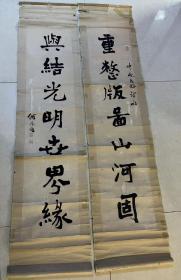 重整版圖山河固
與結光明世界緣